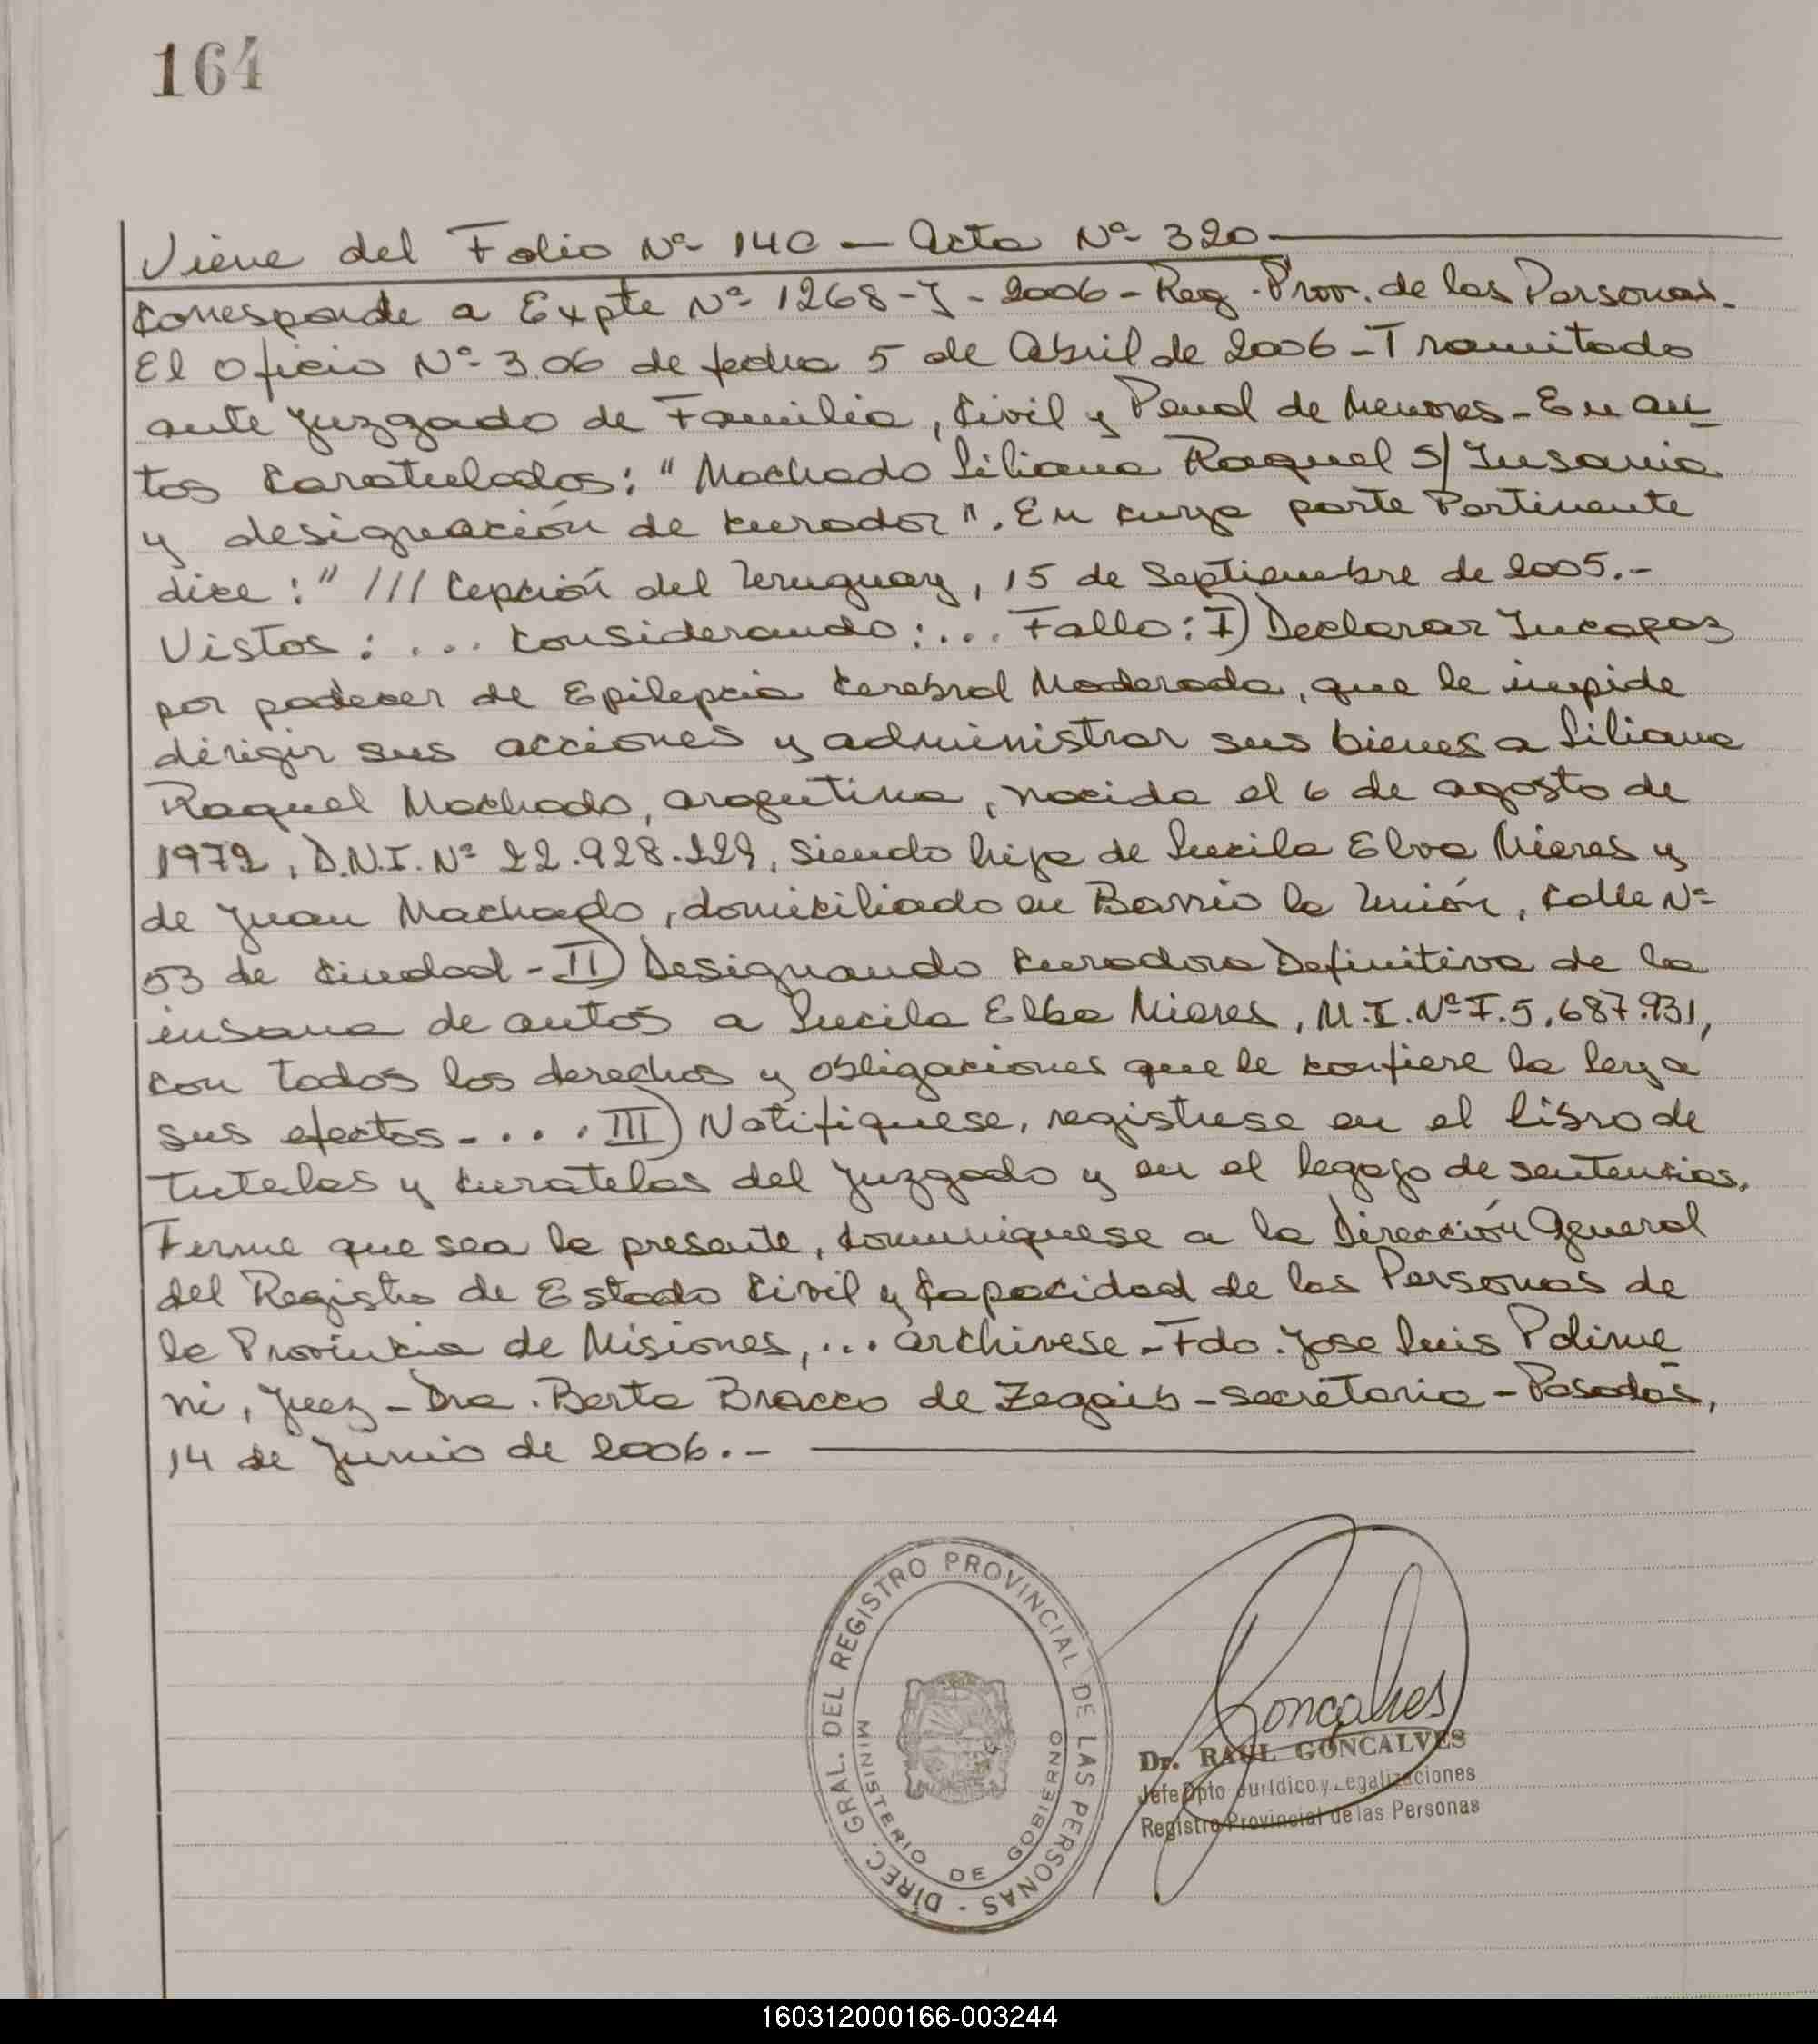 164
Viene del Folio Nº 140 — Acta Nº 320
Corresponde a Expte Nº 1268-J-2006-Reg. Prov. de las Personas.
El Oficio Nº 306 de fecha 5 de Abril de 2006 - Tramitado
ante Juzgado de Familia, Civil y Penal de Menores - En au-
tos Caratulados: "Machado Liliana Raquel S/ Insania
y designación de curador". En cuya parte Pertinente
dice: "/// Cepción del Uruguay, 15 de Septiembre de 2005.-
Vistos: ... Considerando: ... Fallo: I) Declarar Incapaz
por padecer de Epilepcia Cerebral Moderada, que le impide
dirigir sus acciones y administrar sus bienes a Liliana
Raquel Machado, argentina, nacida el 6 de agosto de
1972, D.N.I. Nº 22.928.229, siendo hija de Lucila Elva Mieres y
de Juan Machado, domiciliado en Barrio la Unión, Calle Nº
53 de Ciudad - II) Designando Curadora Definitiva de la
insana de autos a Lucila Elba Mieres, M.I. Nº F.5.687.931,
con todos los derechos y obligaciones que le confiere la ley a
sus efectos - ... III) Notifiquese, registrese en el libro de
Tutelas y curatelas del Juzgado y en el legajo de sentencias.
Firme que sea la presente, comuniquese a la Dirección General
del Registro de Estado Civil y Capacidad de las Personas de
la Provincia de Misiones, ... archivese - Fdo. Jose Luis Polime-
ni, Juez - Dra. Berta Bracco de Zegaib - secretaria - Posadas,
14 de Junio de 2006.-
DIREC. GRAL. DEL REGISTRO PROVINCIAL DE LAS PERSONAS -
MINISTERIO DE GOBIERNO
Gonçalves
Dr. RAUL GONCALVES
Jefe Dpto Jurídico y Legalizaciones
Registro Provincial de las Personas
160312000166-003244